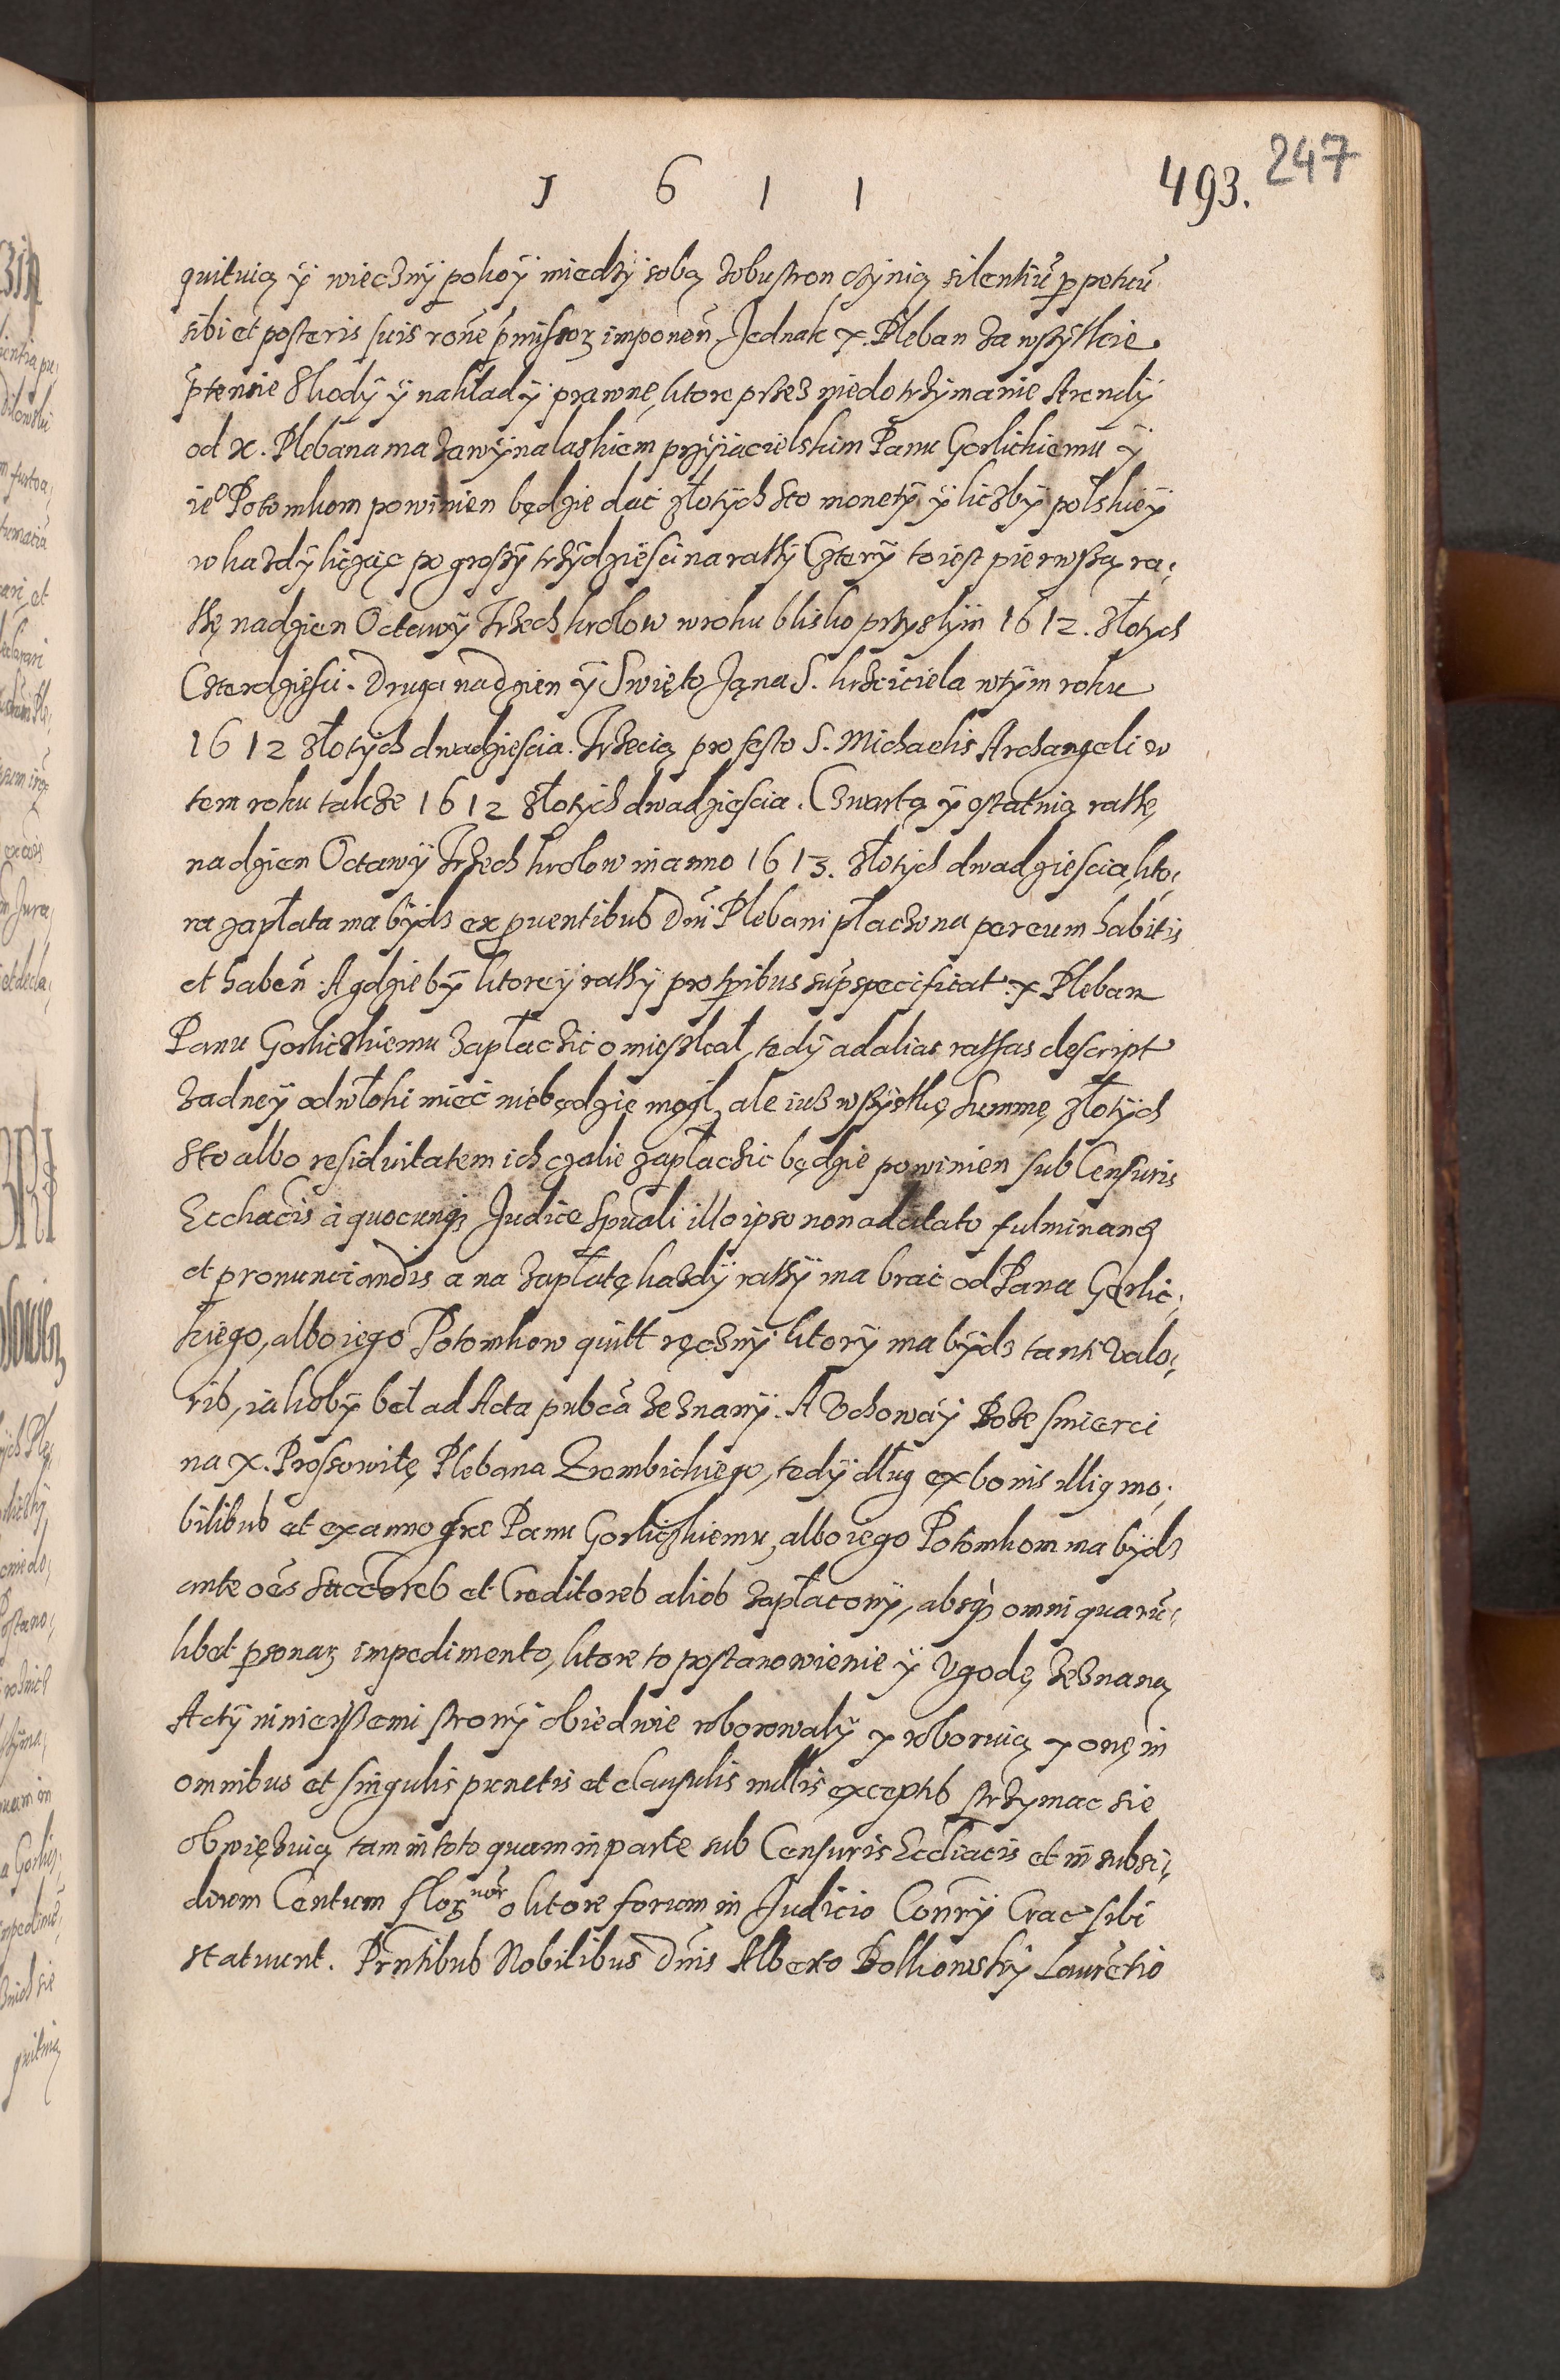 1 6 1 1
493. 247
quituią ÿ wieczny pokoÿ miedzÿ sobą zobustron czÿnią silentiũ ꝑpetuũ
sibi et posteris suis rõne p̃missoꝝ imponeñ. Jednak x. Pleban za wszÿtkie
p̃tensie Skodÿ ÿ nakładÿ prawne, ktore przez niedotrzÿmanie Arendÿ
od x. Plebana ma za wÿnalaskiem przÿiacielskim Panu Gorlickiemu ÿ
ieº Potomkom powinien będzie dać złotÿch sto monetÿ ÿ liczbÿ polskieÿ
w kazdÿ licząc po groszÿ trzÿdziesci na rattÿ Czterÿ to iest pierwszą ra,
ttę na dzien Octawÿ Trzech krolow w roku blisko przyszłÿm 1612. złotych
Czterdziesci. Druga na dzien ÿ Swięto Jana S. krzciciela w tÿm roku
1612 złotÿch dwadziescia. Trzecią pro festo S. Michaelis Archangeli w
tem roku takze 1612 złotÿch dwadziescia. Czwartą ÿ ostatnią rattę
na dzien Octawÿ Trzech krolow in anno 1613. złotÿch dwadziescia, kto,
ra zapłata ma bÿdz ex ꝓuentibus Dñi Plebani płaczona per eum habitis
et habeñ. A gdzie bÿ ktoreÿ rattÿ pro tp̃ribus sup̃ specificat x Pleban
Panu Gorliczkiemu zapłaczic omieszkał, tedÿ ad alias rattas descript
zadneÿ odwłoki mieć nie będzie mogł, ale iuz wszÿstkę Summę złotÿch
sto albo residuitatem ich czalie zapłaczic będzie powinien sub Censuris
Eccl̃iacis à quocunqꝫ Judice Sp̃uali illo ipso non adcitato fulminanđ
et pronunciandis a na zapłatę kazdÿ rattÿ ma brać od Pana Gorlic,
kiego, albo iego Potomkow quitt ręcznÿ ktorÿ ma bÿdz tanti valo,
ris, iakobÿ beł ad Acta pub̃ca zeznanÿ. A Vchowaÿ Boze smierci
na x. Prossowitę Plebana Zrembickiego, tedÿ dług ex bonis illiꝯ mo,
bilibus et ex anno gr̃ae Panu Gorliczkiemu, albo iego Potomkom ma bÿdz
ante oẽs Successores et Creditores alios zapłaconÿ, absqꝫ omni quarũ,
libet ꝑsonaꝝ impedimento, ktore to postanowienie ÿ Vgodę zeznaną
Actÿ ninieÿszemi stronÿ obiedwie roborowałÿ y roboruią y onę in
omnibus et singulis punctis et clausulis nullis exceptis strzÿmac sie
obwięzuią tam in toto quam in parte sub Censuris Eccl̃iacis et in subsi,
dium Centum floꝝ o ktore forum in Judicio Conrÿ Crac sibi
statuunt. Prñtibus Nobilibus Dñis Alberto Bolkowskÿ Laurẽtio